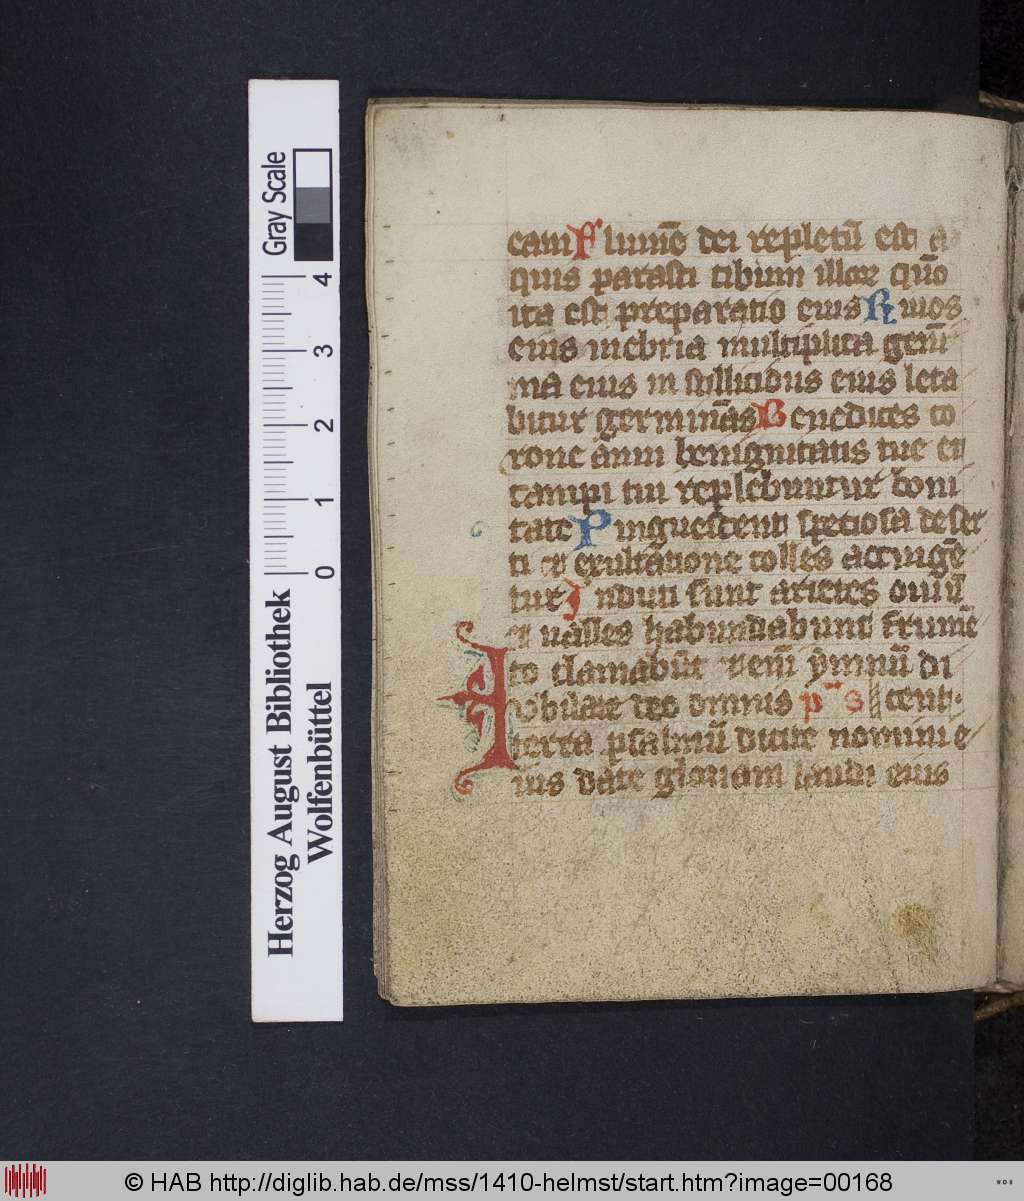 eam Flumē dei repletū est a
quis parasti cibum illoꝝ qm̄
ita est preparatio eius Riuos
eius inebria multiplica geni
mīa eius in stillicidiis eius leta
bitur germinās Benedices co
rone anni benignitatis tue et
campi tui replebuntur boni
tate Pinguescent speciosa deser
ti et exultatione colles accingē
tur Induti sunt arietes ouiū
et ualles habundabunt frumē
to clamabūt etenī ymnū di
Iubilate deo omnis ps cent
terra psalmū dicite nomini e
ius date gloriam laudi eius
Gray Scale
4
3
2
1
0
Herzog August Bibliothek
Wolfenbüttel
© HAB http://diglib.hab.de/mss/1410-helmst/start.htm?image=00168